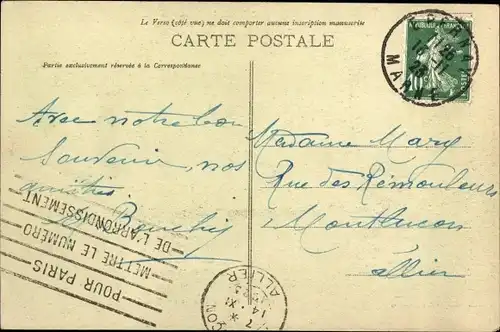 Le Verso (côté vue) ne doit comporter aucune inscription manuscrite
CARTE POSTALE
Partie exclusivement réservée à la Correspondance
MARNE
10
Avec notre bon
Souvenir, nos
amitiés.
Madame Mary
Rue des Rémouleurs
Montlucon
Allier
POUR PARIS
METTRE LE NUMÉRO
DE L'ARRONDISSEMENT
14 XI
ALLIER